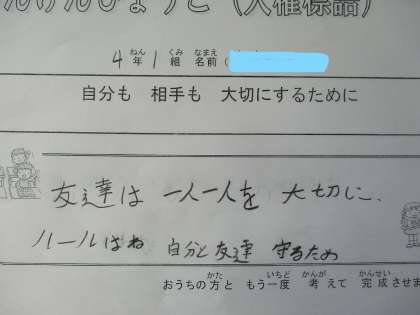 んけんひょうご（人権標語）
4年ねん1組くみ 名前なまえ（
自分も 相手も 大切にするために
友達は 一人一人を 大切に、
ルールはね 自分と友達 守るため
おうちの方かたと もう一度いちど 考かんがえて 完成かんせいさせま